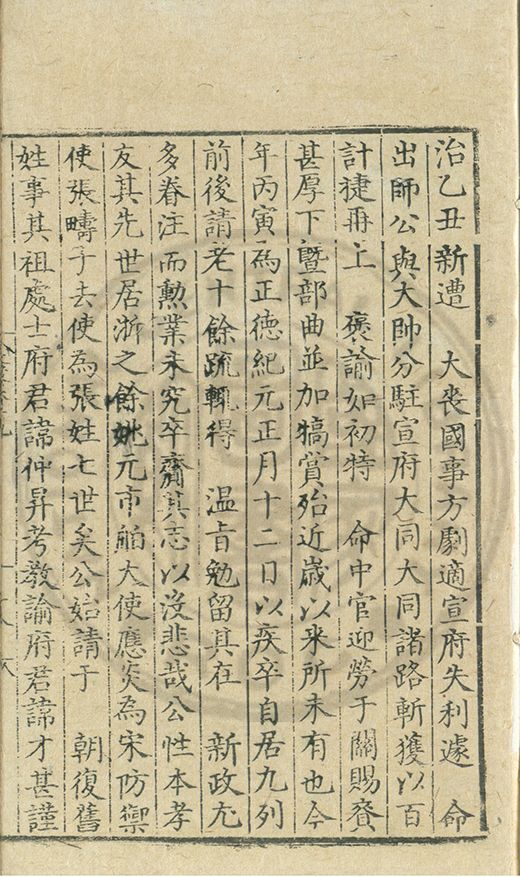 治乙丑　新遭　大喪國事方劇適宣府失利遽　命
出師公與大帥分駐宣府大同大同諸路斬獲以百
計捷再上　褒諭如初特　命中官迎勞于關賜賚
甚厚下暨部曲並加犒賞殆近歲以来所未有也今
年丙寅為正德紀元正月十二日以疾卒自居九列
前後請老十餘疏輒得　温㫖勉留其在　新政尤
多眷注而勲業未究卒齎其志以沒悲哉公性本孝
友其先世居浙之餘姚元市舶大使應炎為宋防禦
使張疇子去使為張姓七世矣公始請于　朝復舊
姓事其祖處士府君諱仲昇考教諭府君諱才甚謹